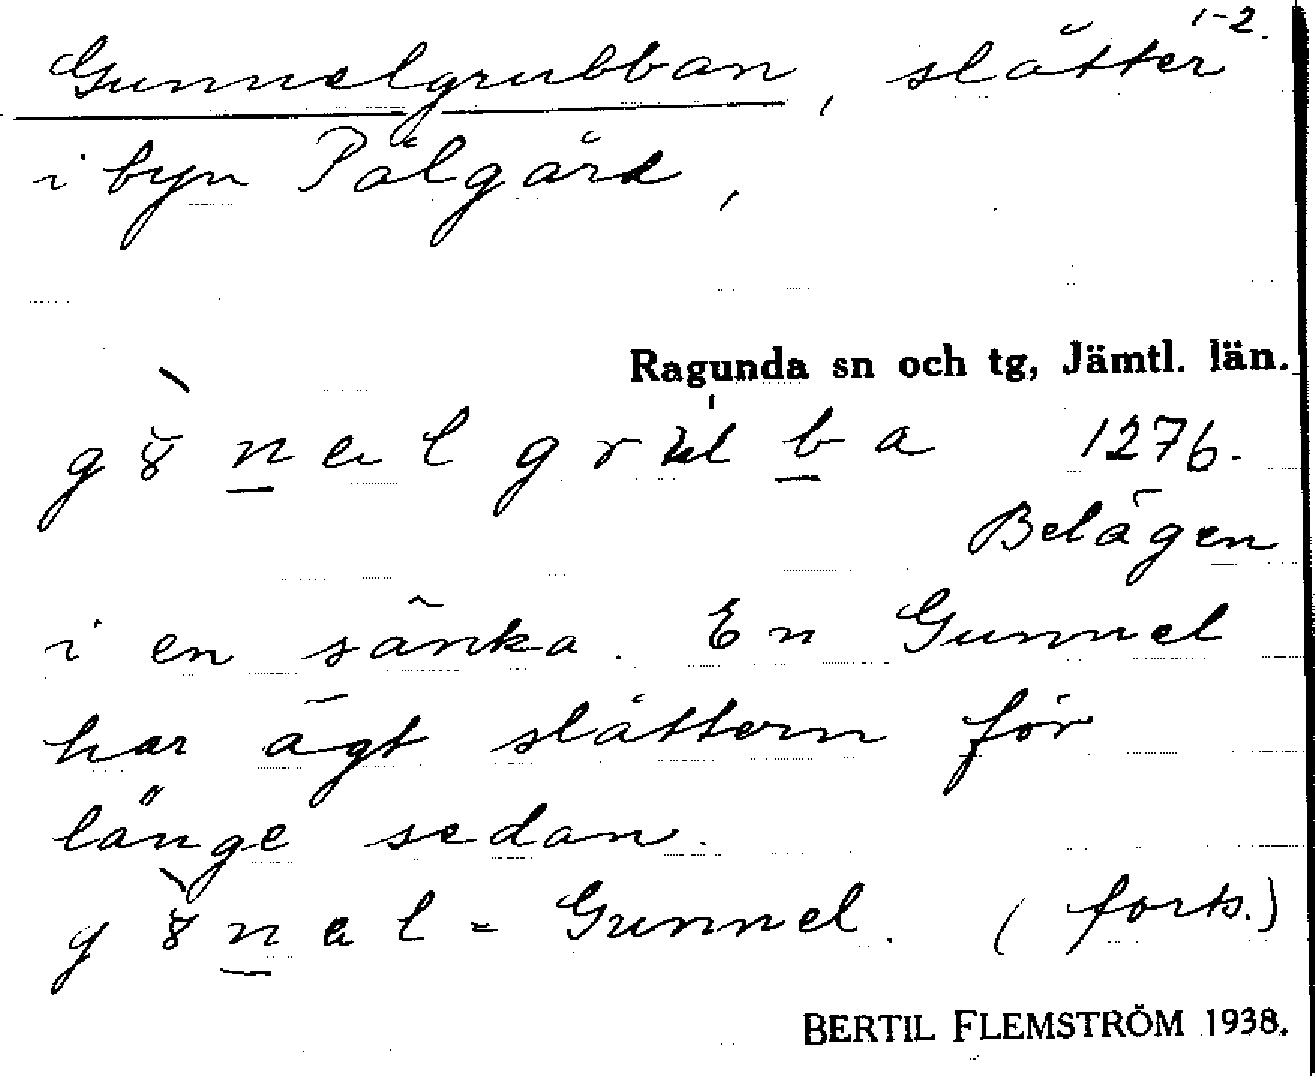 1-2.
Gunnelgrubban, slåtter
i byn Pålgård,
Ragunda sn och tg, Jämtl. län.
1276.
Belägen
i en sänka. En Gunnel
har ägt slåttern för
länge sedan.
= Gunnel. (forts.)
BERTIL FLEMSTRÖM 1938.